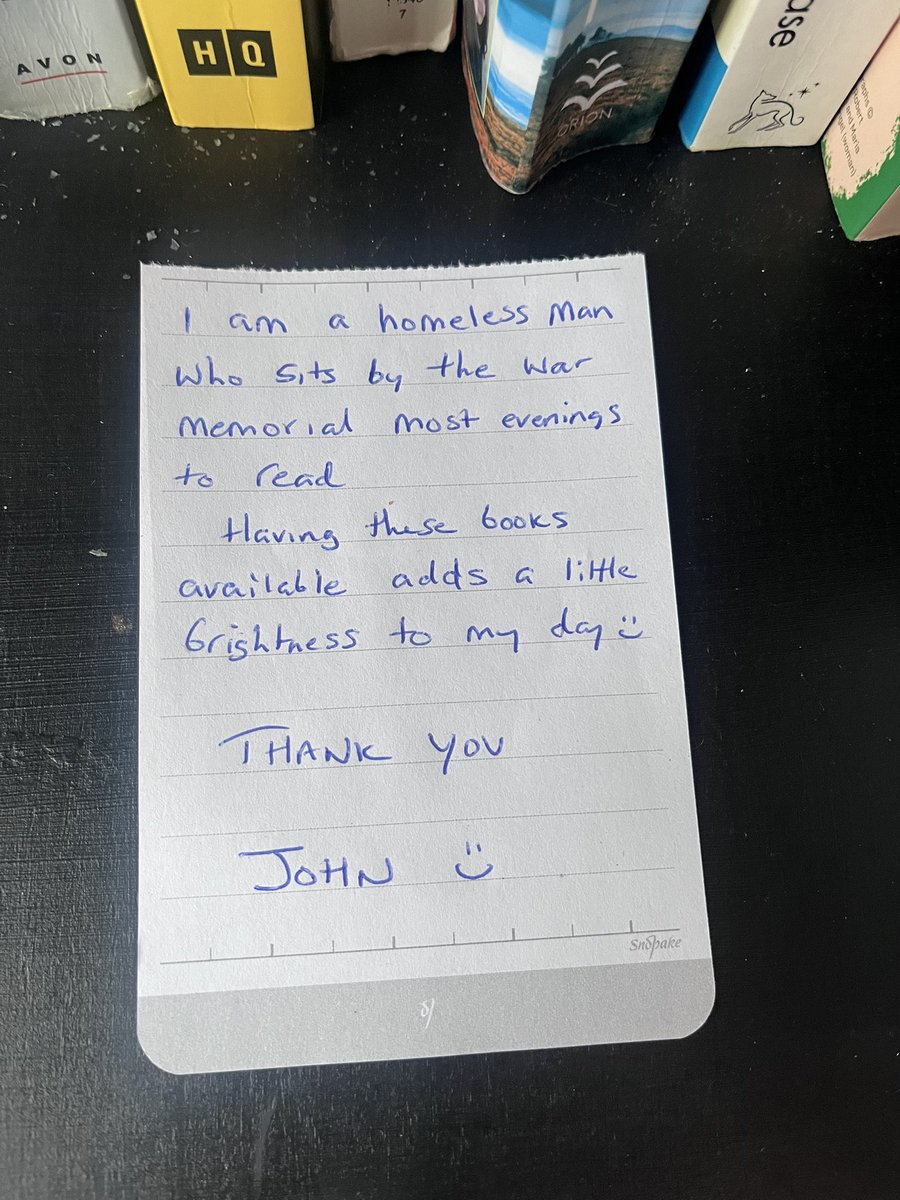 AVON
HQ
7
ORION
ase
I am a homeless man
who sits by the war
memorial most evenings
to read
Having these books
available adds a little
brightness to my day :)
THANK YOU
JOHN :)
Snopake